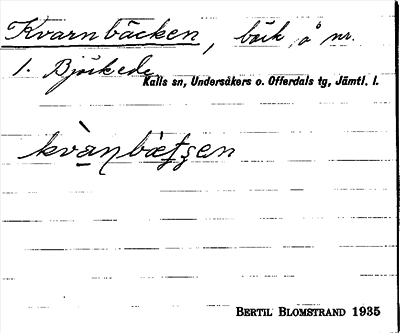 Kvarnbäcken, bäck, å nr.
1. Björkede
Kalls sn, Undersåkers o. Offerdals tg, Jämtl. l.
kvànbæt̯s̯en
BERTIL BLOMSTRAND 1935